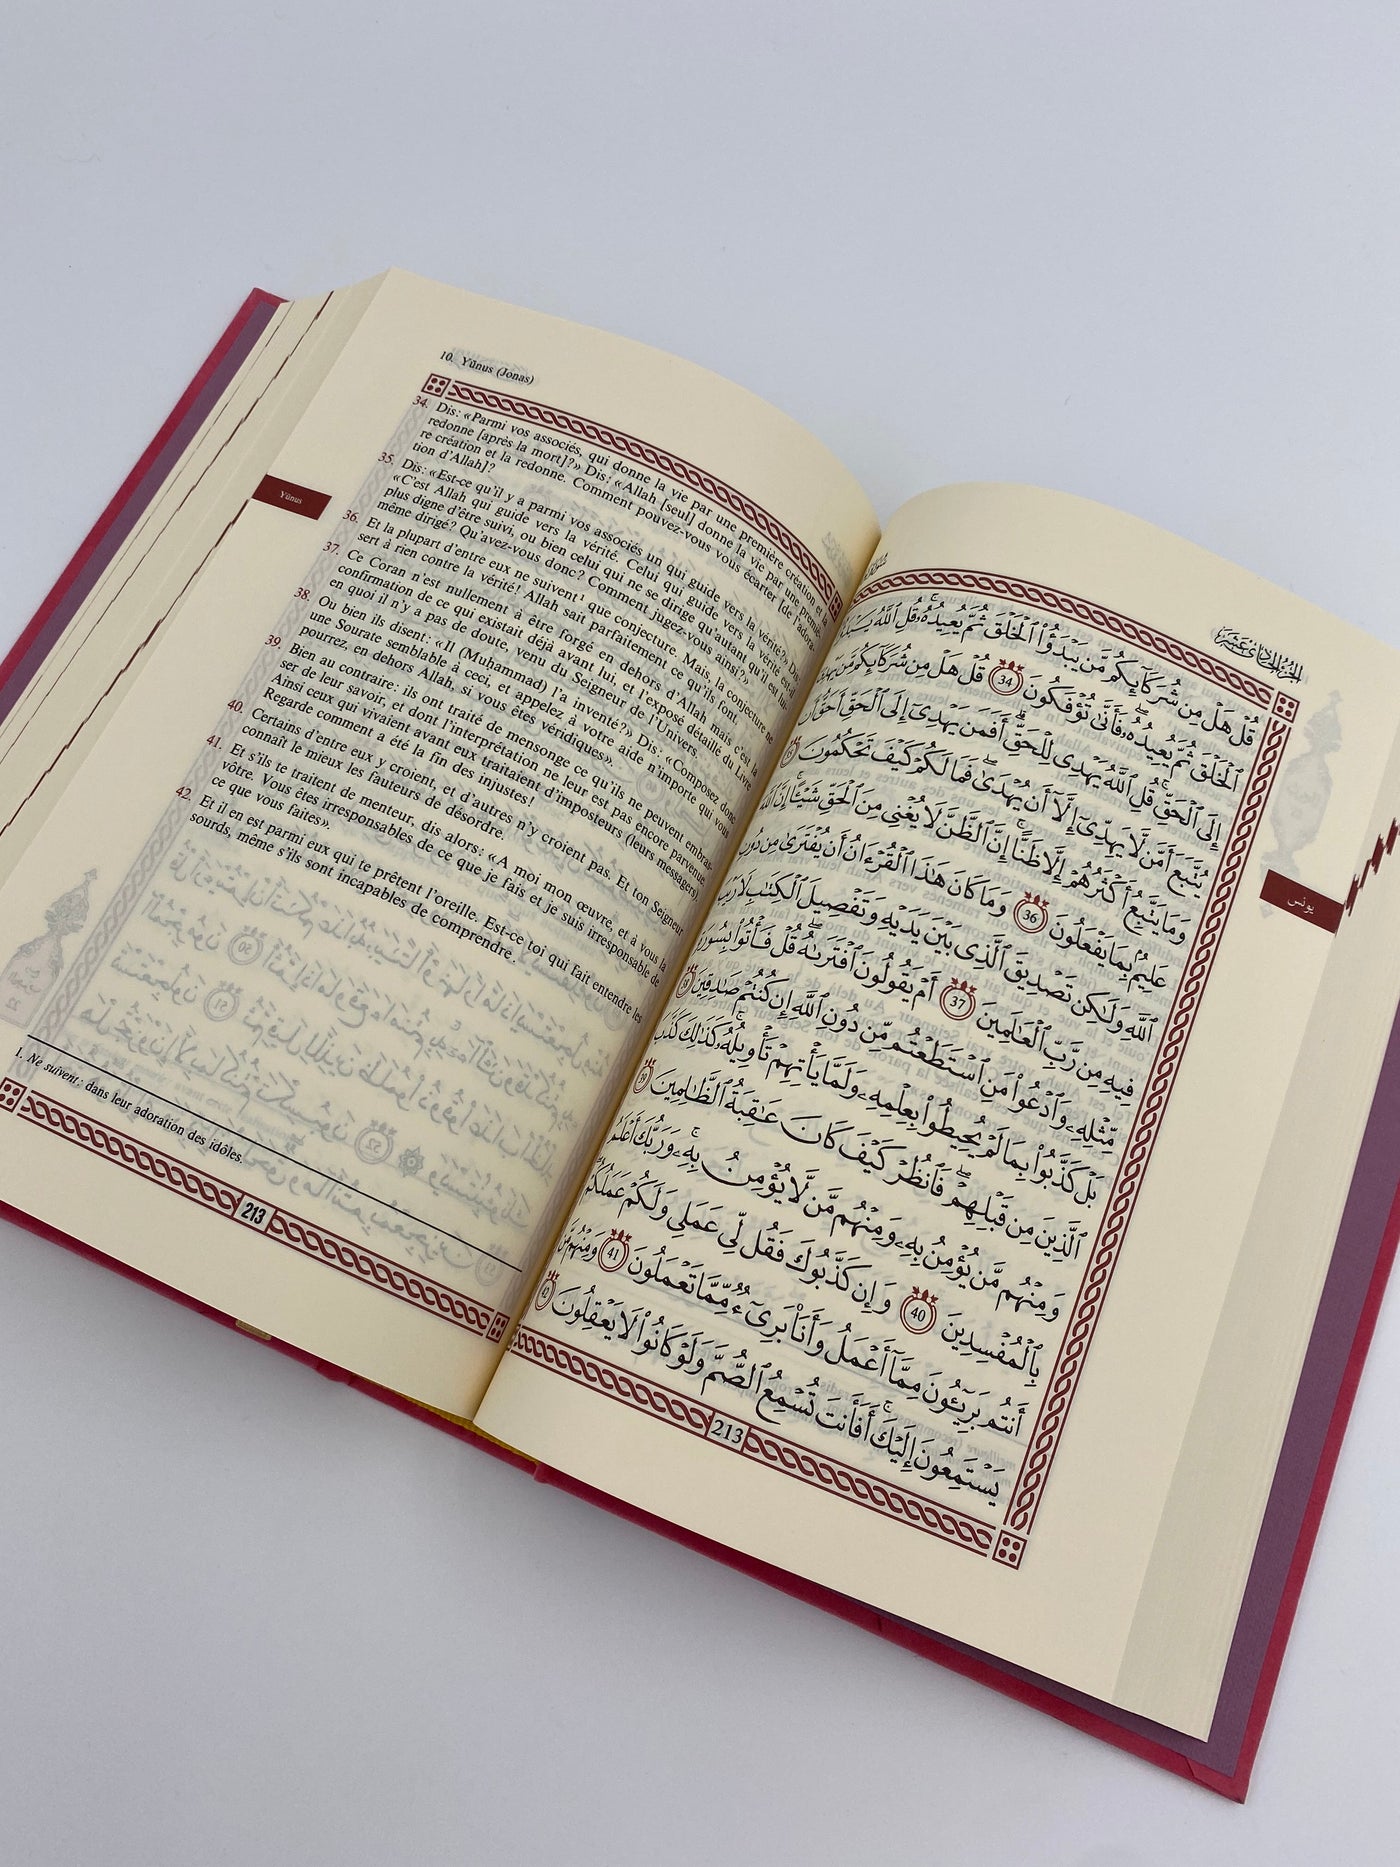 10. Yûnus (Jonas)
Yûnus
34. Dis: «Parmi vos associés, qui donne la vie par une première création et la
redonne [après la mort]?» Dis: «Allah [seul] donne la vie par une premiè-
re création et la redonne. Comment pouvez-vous vous écarter [de l'adora-
tion d'Allah]?
35. Dis: «Est-ce qu'il y a parmi vos associés un qui guide vers la vérité?» Dis:
«C'est Allah qui guide vers la vérité. Celui qui guide vers la vérité est-il
plus digne d'être suivi, ou bien celui qui ne se dirige qu'autant qu'il est lui-
même dirigé? Qu'avez-vous donc? Comment jugez-vous ainsi?»
36. Et la plupart d'entre eux ne suivent¹ que conjecture. Mais, la conjecture ne
sert à rien contre la vérité! Allah sait parfaitement ce qu'ils font.
37. Ce Coran n'est nullement à être forgé en dehors d'Allah mais c'est la
confirmation de ce qui existait déjà avant lui, et l'exposé détaillé du Livre
en quoi il n'y a pas de doute, venu du Seigneur de l'Univers.
38. Ou bien ils disent: «Il (Muḥammad) l'a inventé?» Dis: «Composez donc
une Sourate semblable à ceci, et appelez à votre aide n'importe qui vous
pourrez, en dehors d'Allah, si vous êtes véridiques».
39. Bien au contraire: ils ont traité de mensonge ce qu'ils ne peuvent embras-
ser de leur savoir, et dont l'interprétation ne leur est pas encore parvenue.
Ainsi ceux qui vivaient avant eux traitaient d'imposteurs (leurs messagers).
Regarde comment a été la fin des injustes!
40. Certains d'entre eux y croient, et d'autres n'y croient pas. Et ton Seigneur
connaît le mieux les fauteurs de désordre.
41. Et s'ils te traitent de menteur, dis alors: «A moi mon œuvre, et à vous la
vôtre. Vous êtes irresponsables de ce que je fais et je suis irresponsable de
ce que vous faites».
42. Et il en est parmi eux qui te prêtent l'oreille. Est-ce toi qui fait entendre les
sourds, même s'ils sont incapables de comprendre.
1. Ne suivent: dans leur adoration des idôles.
213
الجزء الحادي عشر
يونس
قُلْ هَلْ مِن شُرَكَآئِكُم مَّن يَبْدَؤُا۟ ٱلْخَلْقَ ثُمَّ يُعِيدُهُۥ ۚ قُلِ ٱللَّهُ
ٱلْخَلْقَ ثُمَّ يُعِيدُهُۥ ۖ فَأَنَّىٰ تُؤْفَكُونَ 34 قُلْ هَلْ مِن شُرَكَآئِكُم مَّن
إِلَى ٱلْحَقِّ ۚ قُلِ ٱللَّهُ يَهْدِى لِلْحَقِّ ۗ أَفَمَن يَهْدِىٓ إِلَى ٱلْحَقِّ أَحَقُّ أَن
يُتَّبَعَ أَمَّن لَّا يَهِدِّىٓ إِلَّآ أَن يُهْدَىٰ ۖ فَمَا لَكُمْ كَيْفَ تَحْكُمُونَ 35
وَمَا يَتَّبِعُ أَكْثَرُهُمْ إِلَّا ظَنًّا ۚ إِنَّ ٱلظَّنَّ لَا يُغْنِى مِنَ ٱلْحَقِّ شَيْـًٔا ۚ إِنَّ ٱللَّهَ
عَلِيمٌۢ بِمَا يَفْعَلُونَ 36 وَمَا كَانَ هَٰذَا ٱلْقُرْءَانُ أَن يُفْتَرَىٰ مِن دُونِ
ٱللَّهِ وَلَٰكِن تَصْدِيقَ ٱلَّذِى بَيْنَ يَدَيْهِ وَتَفْصِيلَ ٱلْكِتَٰبِ لَا رَيْبَ
فِيهِ مِن رَّبِّ ٱلْعَٰلَمِينَ 37 أَمْ يَقُولُونَ ٱفْتَرَىٰهُ ۖ قُلْ فَأْتُوا۟ بِسُورَةٍ
مِّثْلِهِۦ وَٱدْعُوا۟ مَنِ ٱسْتَطَعْتُم مِّن دُونِ ٱللَّهِ إِن كُنتُمْ صَٰدِقِينَ 38
بَلْ كَذَّبُوا۟ بِمَا لَمْ يُحِيطُوا۟ بِعِلْمِهِۦ وَلَمَّا يَأْتِهِمْ تَأْوِيلُهُۥ ۚ كَذَٰلِكَ كَذَّبَ
ٱلَّذِينَ مِن قَبْلِهِمْ ۖ فَٱنظُرْ كَيْفَ كَانَ عَٰقِبَةُ ٱلظَّٰلِمِينَ 39
وَمِنْهُم مَّن يُؤْمِنُ بِهِۦ وَمِنْهُم مَّن لَّا يُؤْمِنُ بِهِۦ ۚ وَرَبُّكَ أَعْلَمُ
بِٱلْمُفْسِدِينَ 40 وَإِن كَذَّبُوكَ فَقُل لِّى عَمَلِى وَلَكُمْ عَمَلُكُمْ ۖ
أَنتُم بَرِيٓـُٔونَ مِمَّآ أَعْمَلُ وَأَنَا۠ بَرِىٓءٌ مِّمَّا تَعْمَلُونَ 41 وَمِنْهُم مَّن
يَسْتَمِعُونَ إِلَيْكَ ۚ أَفَأَنتَ تُسْمِعُ ٱلصُّمَّ وَلَوْ كَانُوا۟ لَا يَعْقِلُونَ 42
213